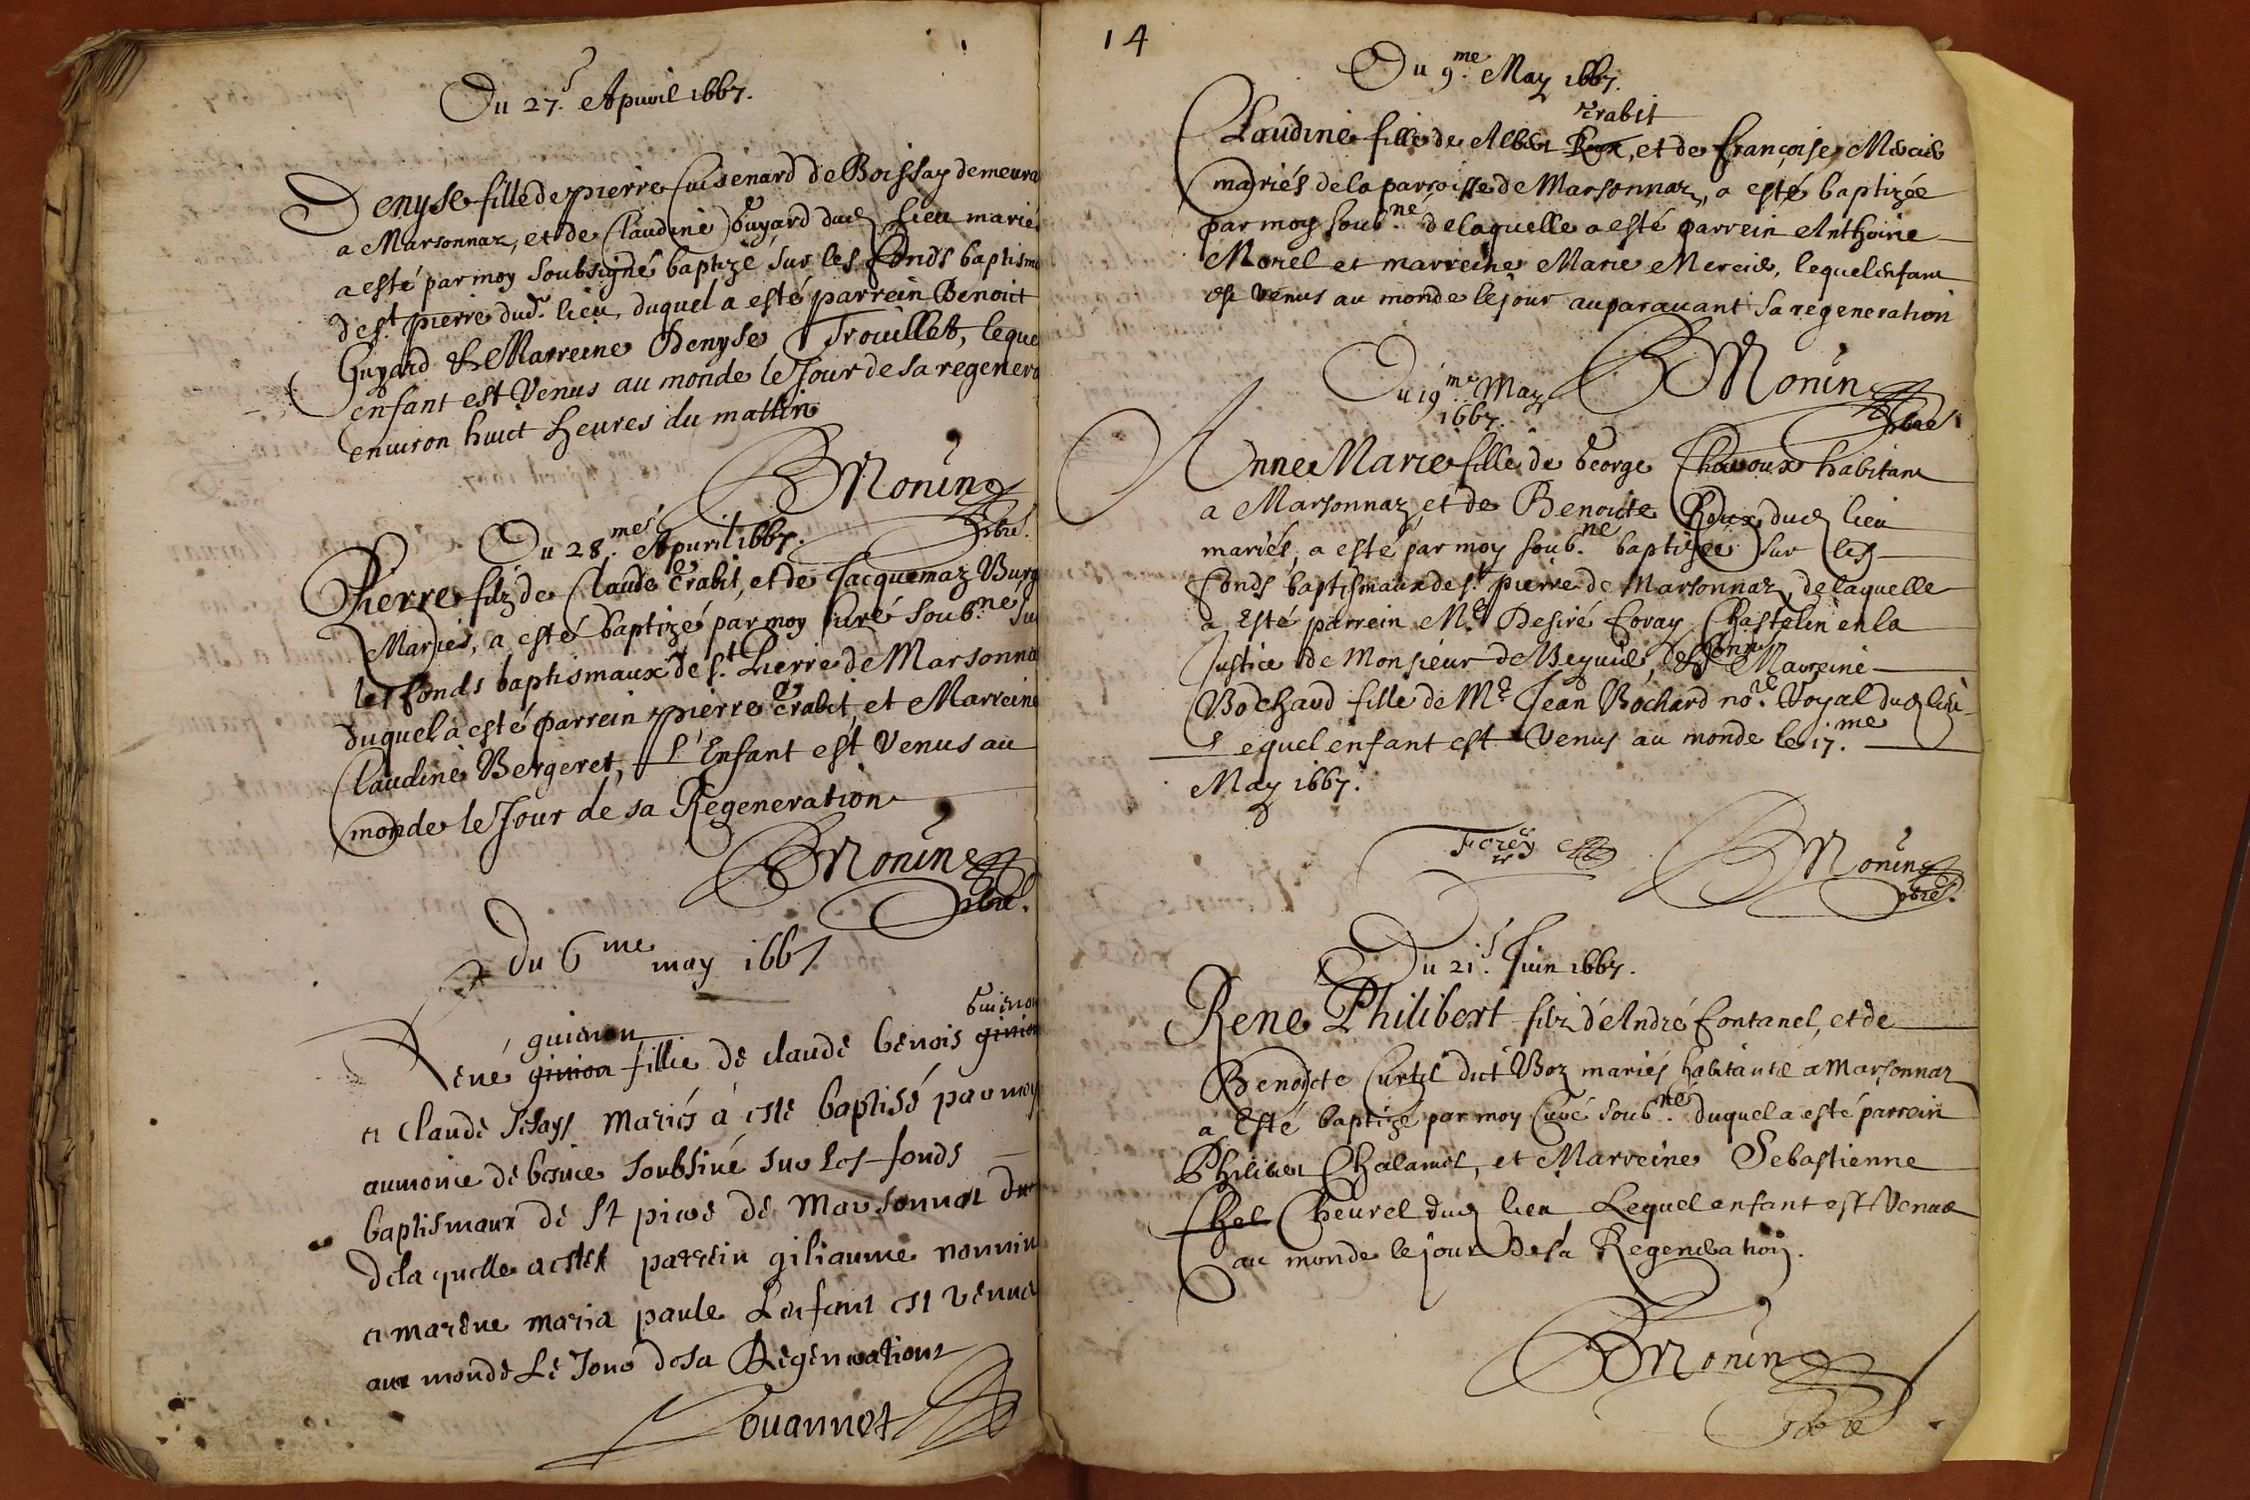 Du 27.e Apuril 1667.
Denyse fille de pierre Cuisenard de Boissay demeura
a Marsonnaz, et de Claudine Guyard dud lieu marié
a esté par moy soubsigné baptizé sur les fonds baptisma
de st pierre dud. lieu, duquel a esté parrein Benoict
Guyard et Marreine Denyse Trouillet, leque
enfant est Venus au monde le Jour de sa regenera
enuiron huict heures du mattin
B Monin
pbre.
Du 28.mes Apuril 1667.
Pierre filz de Claude Crabit, et de Jacquemaz Burg
Mariés, a esté baptizé par moy Curé soub.né su
les fonds baptismaux de st. Pierre de Marsonna
duquel a esté parrein pierre Crabit, et Marreine
Claudine Bergeret, L'Enfant est Venus au
monde le Jour de sa Regeneration
B Monin
pbre.
Du 6me may 1667
guienon Guienon
René ginion fillie de claude benois ginion
et claude mariés à esté baptisé par moy
aumonie de soubsiné sur les fonds
baptismaux de st piere de marsonnat du
dela quelle a estet parrein giliaume nonnin
et marene maria paule Lenfant est venue
aux monde Le Jour de sa Regeneration
Jouannet
14
Du 9.me May 1667.
Crabit
Claudine fille de Albert Roux, et de françoise Mercier
mariés de la parroisse de Marsonnaz, a esté baptizée
par moy soub.né de laquelle a esté parrein Anthoine
Morel et marreine Marie Mercier, lequel enfant
est Venus au monde le jour auparauant sa regeneration
B Monin
pbre
Du 19.me May
1667.
Anne Marie fille de George Chavoux habitant
a Marsonnaz et de Benoicte Roux dud lieu
mariés, a esté par moy soub.né baptizée sur les
fonds baptismaux de st. pierre de Marsonnaz, de laquelle
a Esté parrein Me Desiré foray Chastelin en la
Justice de Monsieur de et Marreine
Bochard fille de Me Jean Bochard no.re Royal dud lieu
Lequel enfant est Venus au monde le 17.me
May 1667.
B Monin
pbre.
Du 21.e Juin 1667.
Rene Philibert filz d'André fontanel, et de
Benoicte Curtil dict Boz mariés habitants a Marsonnaz
a Esté baptizé par moy Curé soub.né duquel a esté parrein
Philibert Chalamel, et Marreine Sebastienne
Chel Cheurel dud lieu Lequel enfant est Venus
au monde le jour de sa Regeneration.
B Monin
pbre